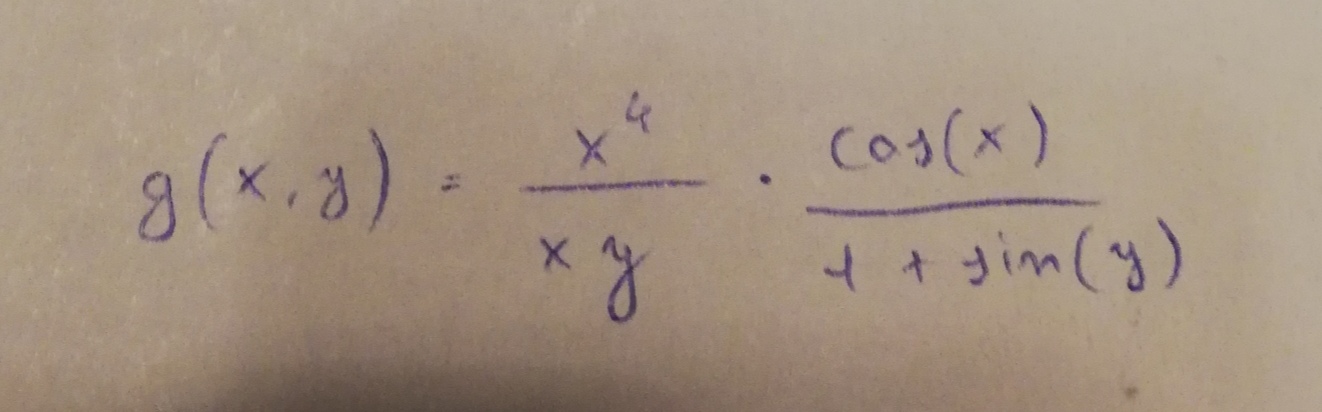 g(x,y) = x^4/(xy) · cos(x)/(1 + sin(y))